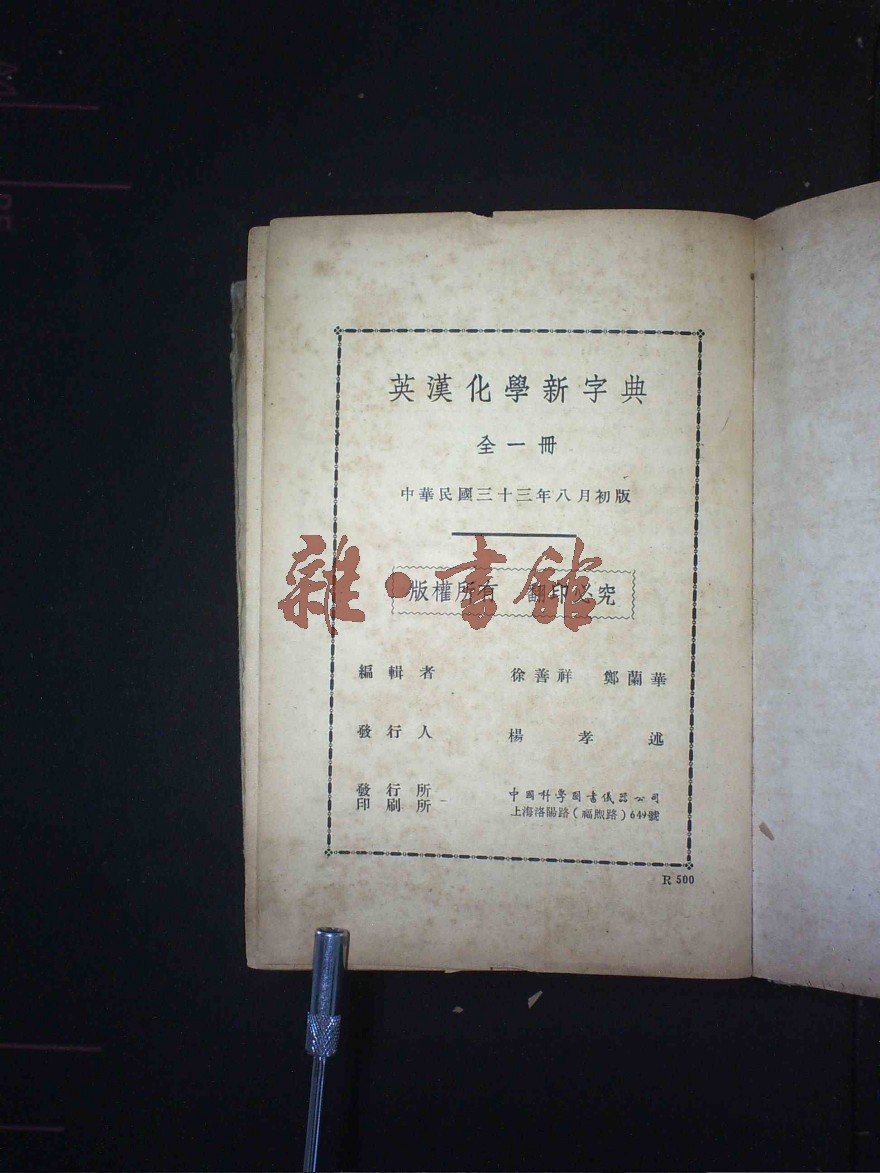 英漢化學新字典
全一冊
中華民國三十三年八月初版
雜·書館
版權所有 翻印必究
編輯者 徐善祥 鄭蘭華
發行人 楊孝述
發行所
印刷所
中國科學圖書儀器公司
上海洛陽路(福煦路)649號
R 500